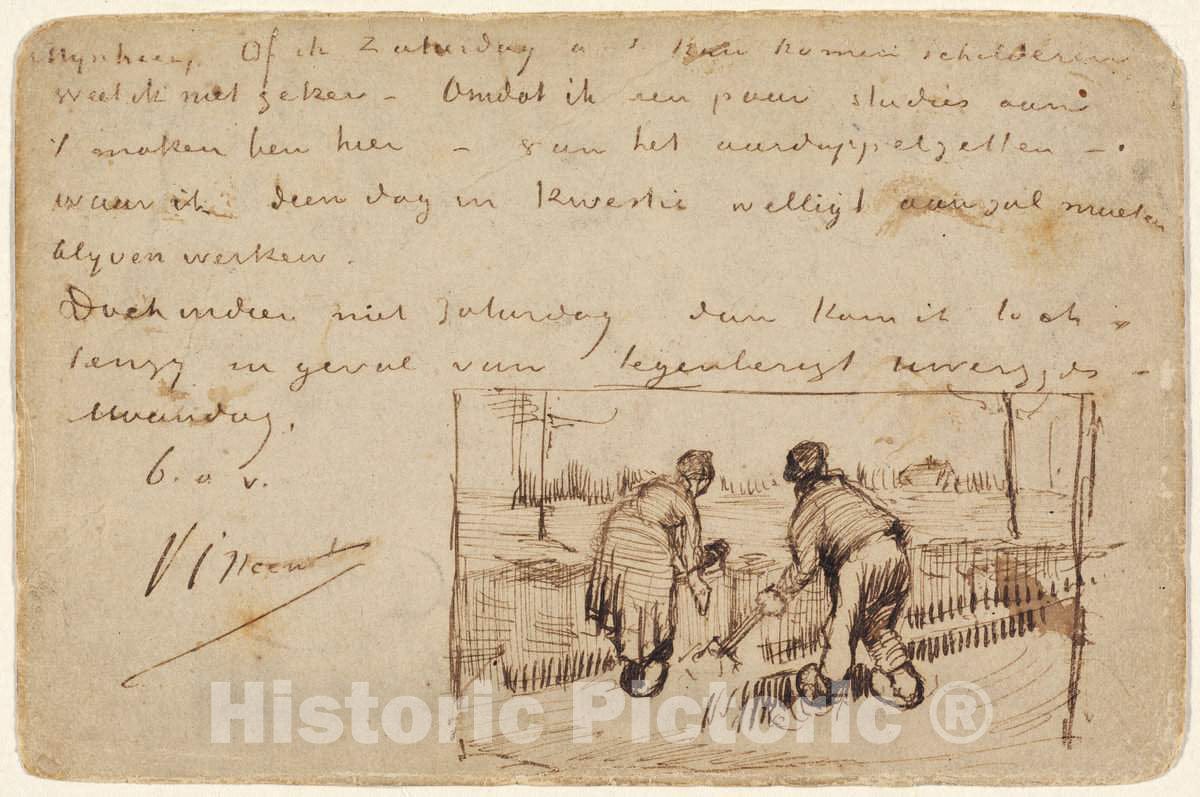 Mynheer, Of ik Zaturdag a s kan komen schilderen
weet ik niet zeker - Omdat ik een paar studies aan
't maken ben hier - van het aardappelzetten -
waar ik dien dag in kwestie welligt aan zal moeten
blyven werken.
Doch indien niet Zaturdag dan kom ik toch
tenzy in geval van tegenberigt uwerzyds -
Maandag.
b. a v.
Vincent
Historic Pictoric ®